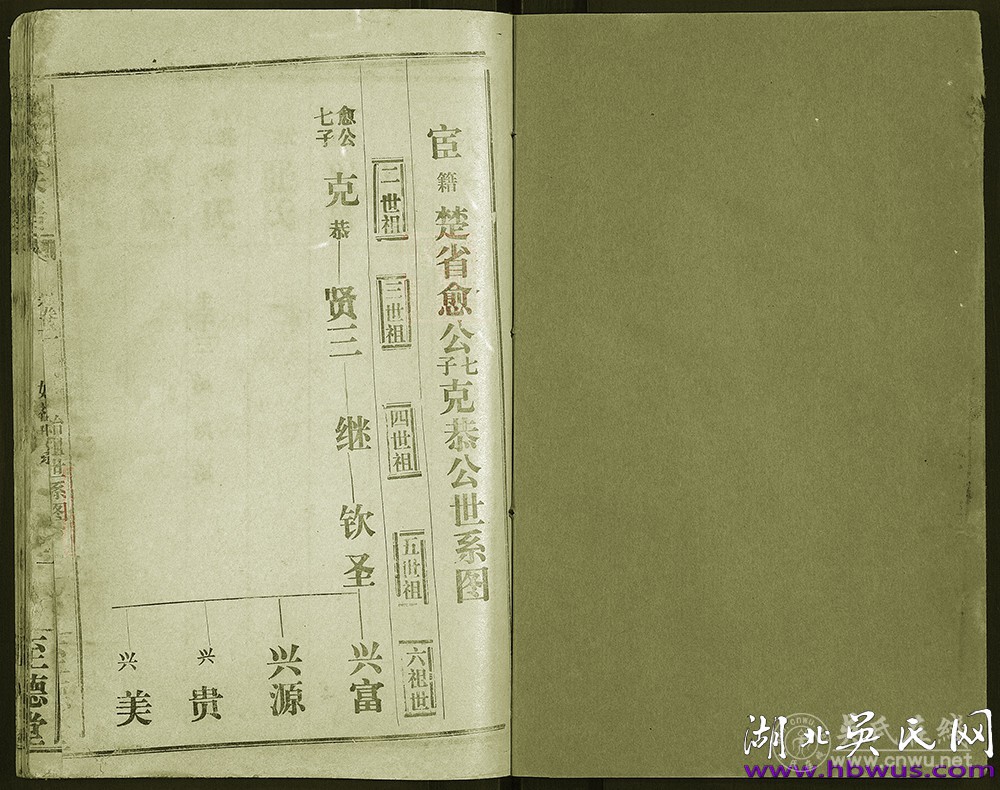 宦籍楚省愈公七子克恭公世系图
二世祖
三世祖
四世祖
五世祖
六祖世
愈公
七子
克恭
贤三
继
钦圣
兴富
兴源
兴贵
兴美
始祖世系图
至德堂
湖北吴氏网
www.cnwu.net
www.hbwus.com